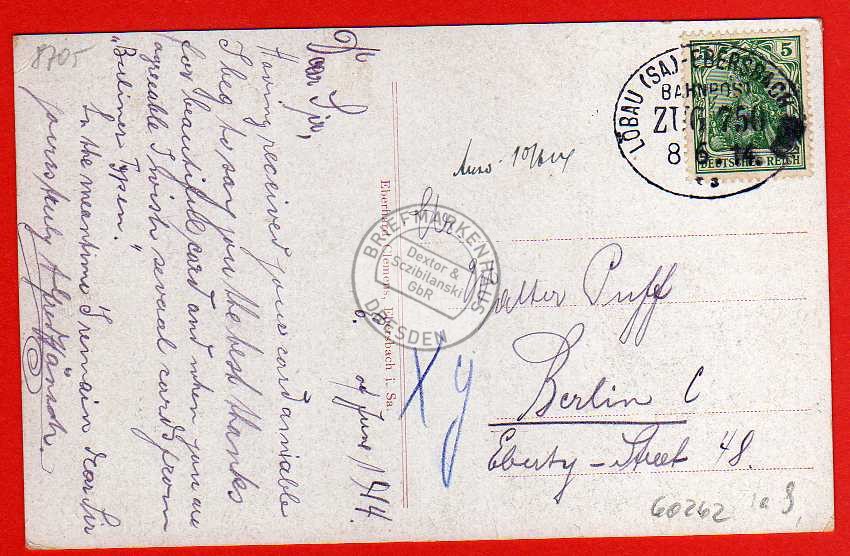 8705
6. of June 1914.
Dear Sir,
Having received your card amiable
I beg to say you the best thanks
for beautiful card and when you are
agreeable I wish several cards from
"Berliner Typen."
In the meantime I remain dear Sir
yours truly Alfred
Eberhard Clemens, Ebersbach i. Sa.
LÖBAU (SA)-EBERSBACH
BAHNPOST
ZUG 750
8 6 14
5
DEUTSCHES REICH
Walter Puff
Berlin C
Eberty-Street 48.
X y
60262
BRIEFMARKENHAUS
Dextor &
Sczibilanski
GbR
DRESDEN